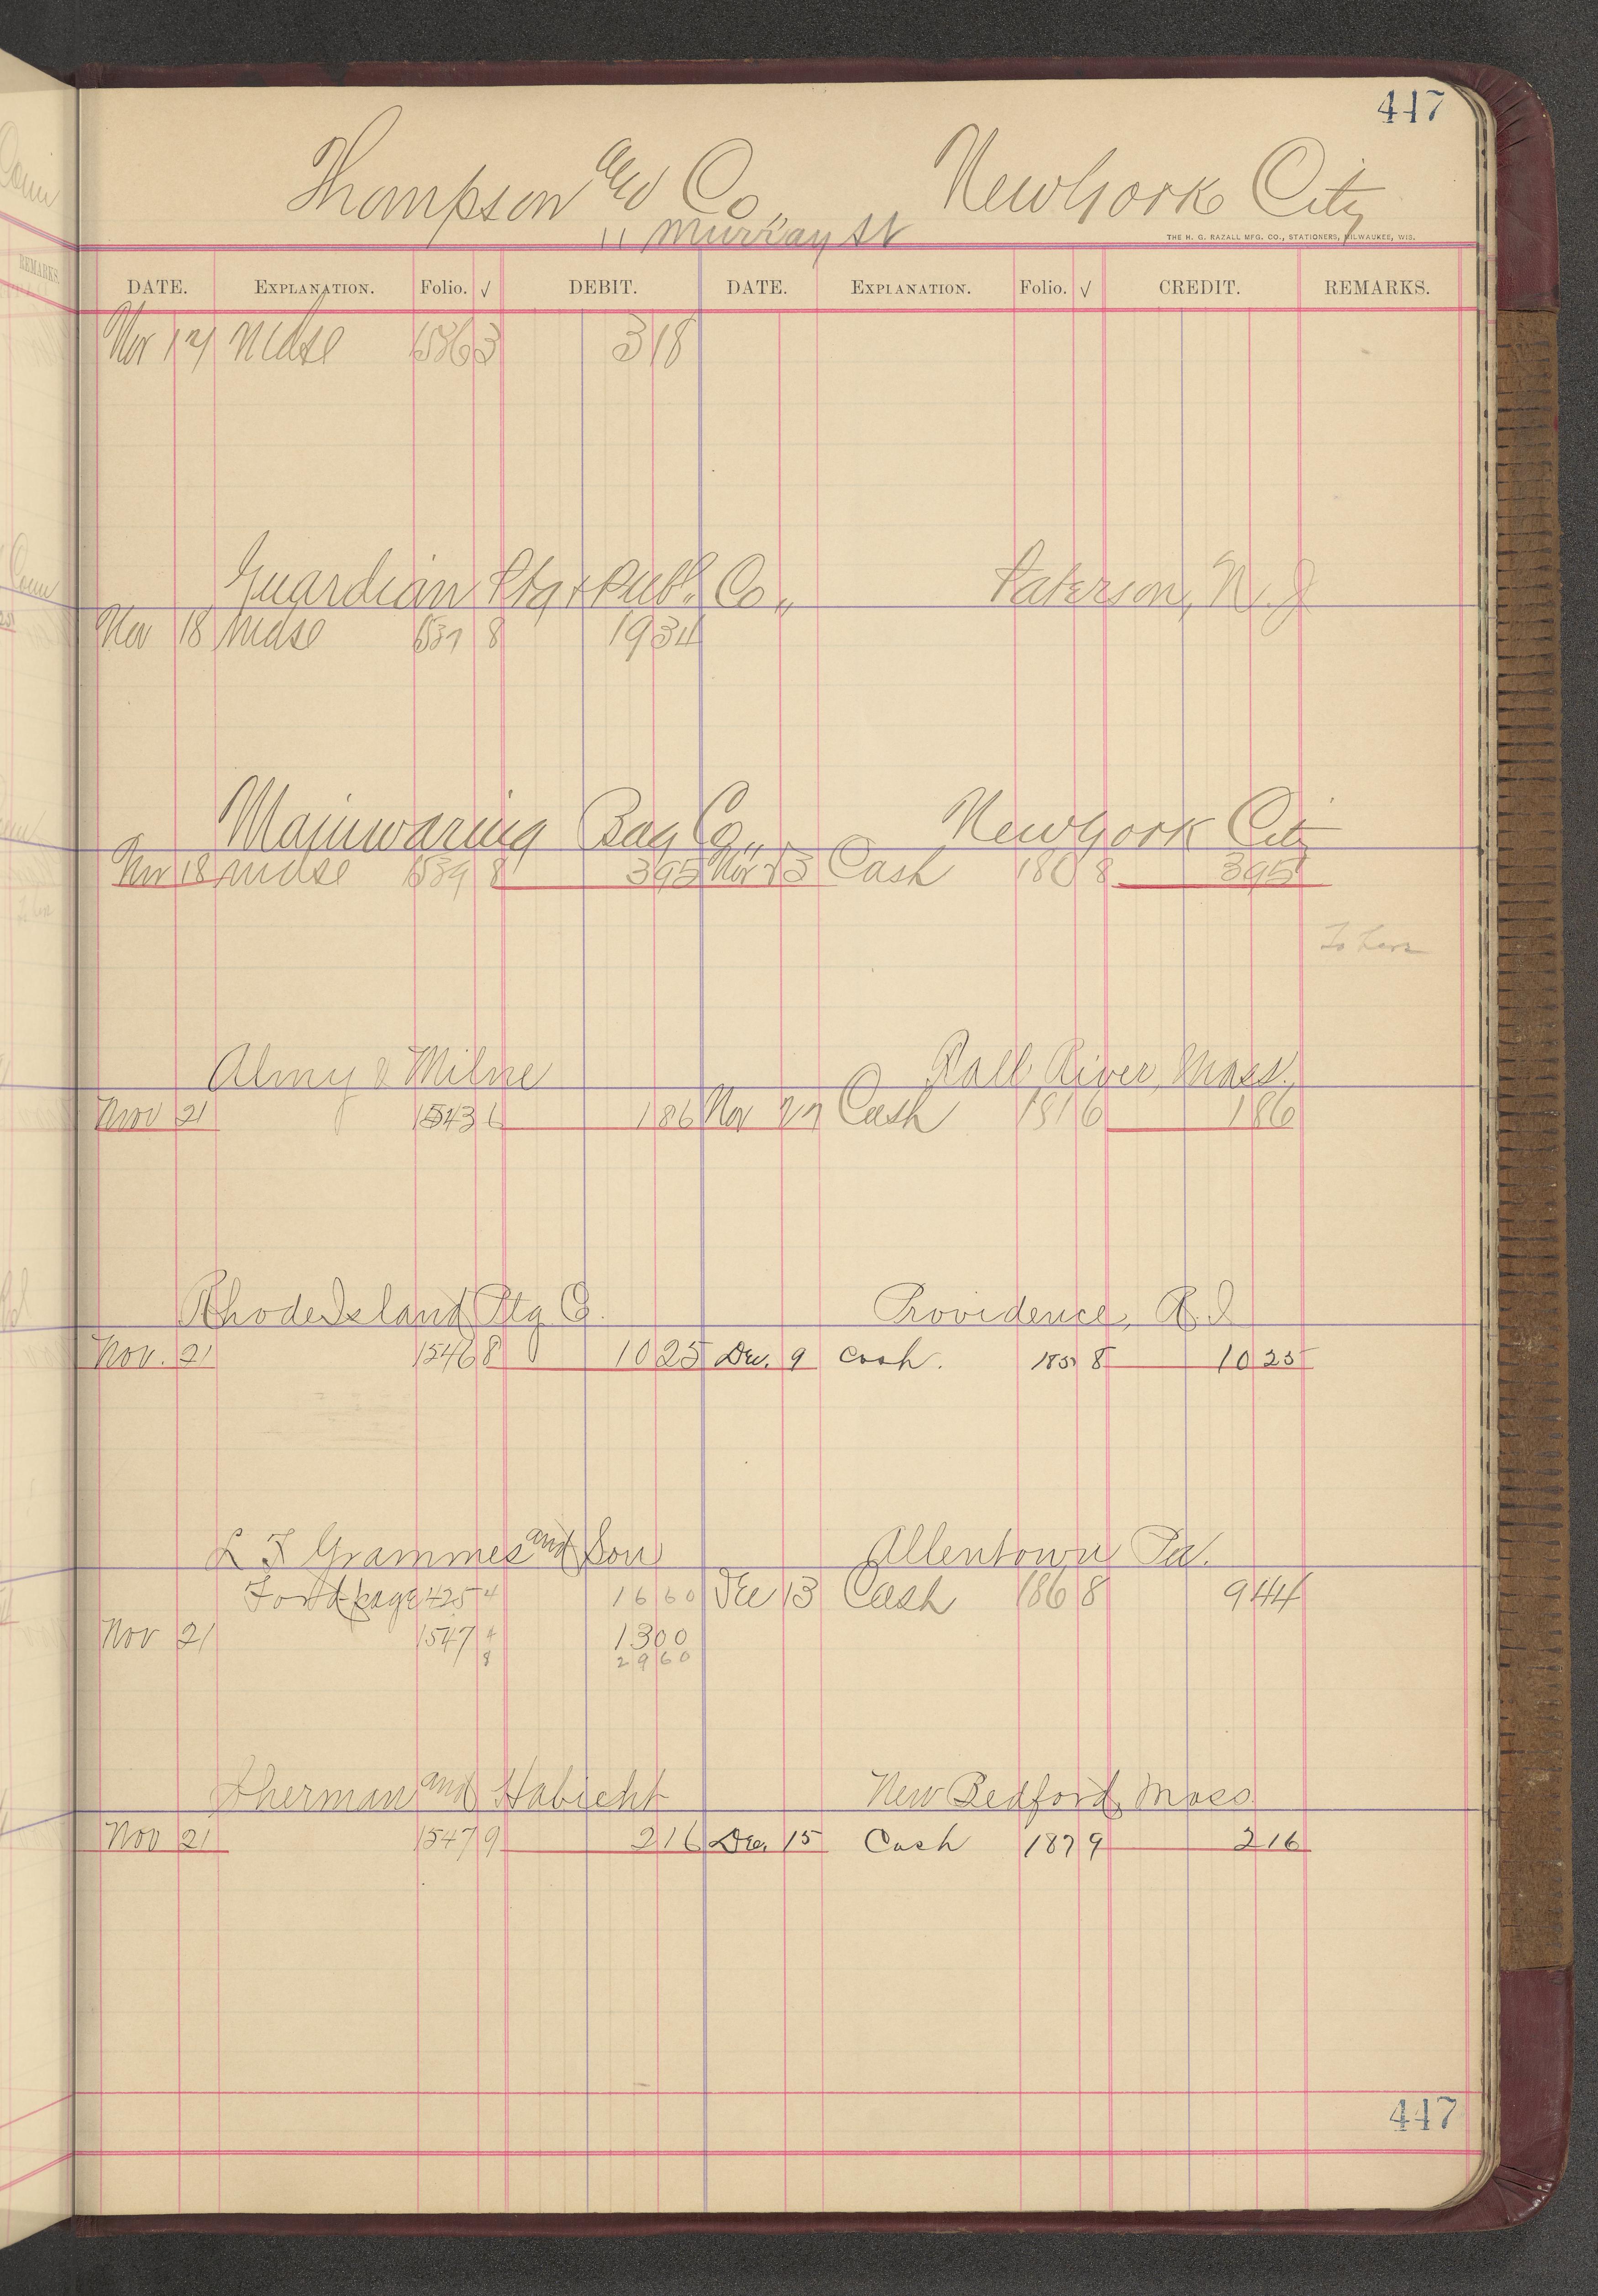 447
Thompson and Co New York City
11 Murray St
THE H. G. RAZALL MFG. CO., STATIONERS, MILWAUKEE, WIS.
DATE. EXPLANATION. Folio. √ DEBIT. DATE. EXPLANATION. Folio. √ CREDIT. REMARKS.
Nov 17 Mdse 1536 3 3 18
Guardian Ptg & Publ. Co., Paterson, N.J
Nov 18 Mdse 1537 8 19 34
Mainwaring Bag Co., New York City
Nov 18 Mdse 1539 8 3 95 Nov 23 Cash 180 8 3 95
Almy & Milne Fall River, Mass.
Nov 21 1543 6 1 86 Nov 27 Cash 181 6 1 86
Rhode Island Ptg Co. Providence, R.I
Nov. 21 1546 8 10 25 Dec. 9 Cash. 185 8 10 25
L F Grammes and Son Allentown Pa.
For'd page 425 4 16 60 Dec 13 Cash 186 8 9 44
Nov 21 1547 4 13 00
8 29 60
Sherman and Habicht New Bedford, Mass
Nov 21 1547 9 2 16 Dec. 15 Cash 187 9 2 16
447